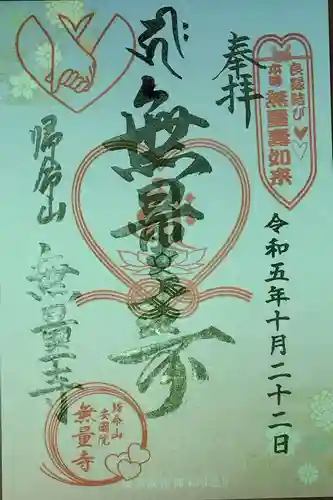 奉拝
良縁結び
本尊 無量寿如来
令和五年十月二十二日
無量寿
帰命山
無量寺
帰命山
安國院
無量寺